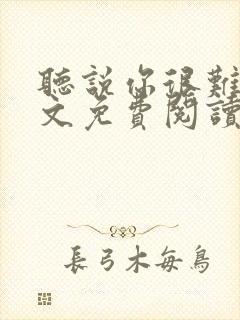 聽說你很難
文免費閱讀
長弓木每鳥